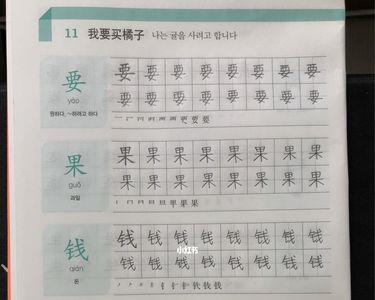 11 我要买橘子 나는 귤을 사려고 합니다
要 要 要 要 要 要 要 要 要
要 要 要 要 要 要 要 要
yào
원하다, ~하려고 하다
果 果 果 果 果 果 果 果 果
果 果 果 果 果 果 果 果
guǒ
과일
钱 钱 钱 钱 钱 钱 钱 钱 钱
钱 钱 钱 钱 钱 钱 钱 钱
小红书
qián
돈